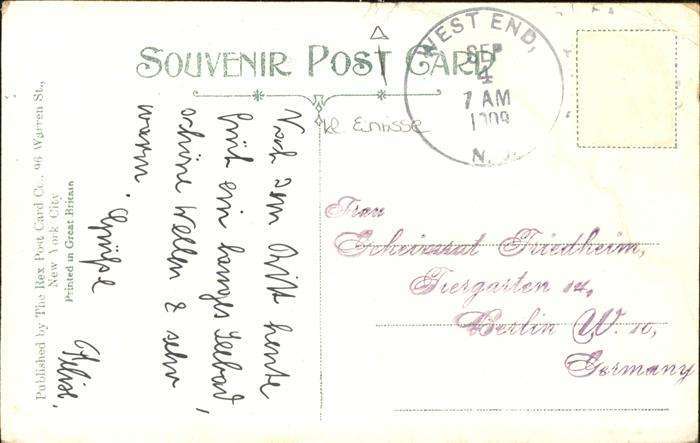 SOUVENIR POST CARD
WEST END,
SEP
4
7 AM
1909
N. J.
kl Einrisse
Nach dem Ritt heute
früh ein langes Seebad,
schöne Wellen & sehr
warm. Grüße
Felix.
Frau
Geheimrat Friedheim,
Tiergarten 14,
Berlin W. 10,
Germany
Published by The Rex Post Card Co., 96 Warren St.,
New York City
Printed in Great Britain